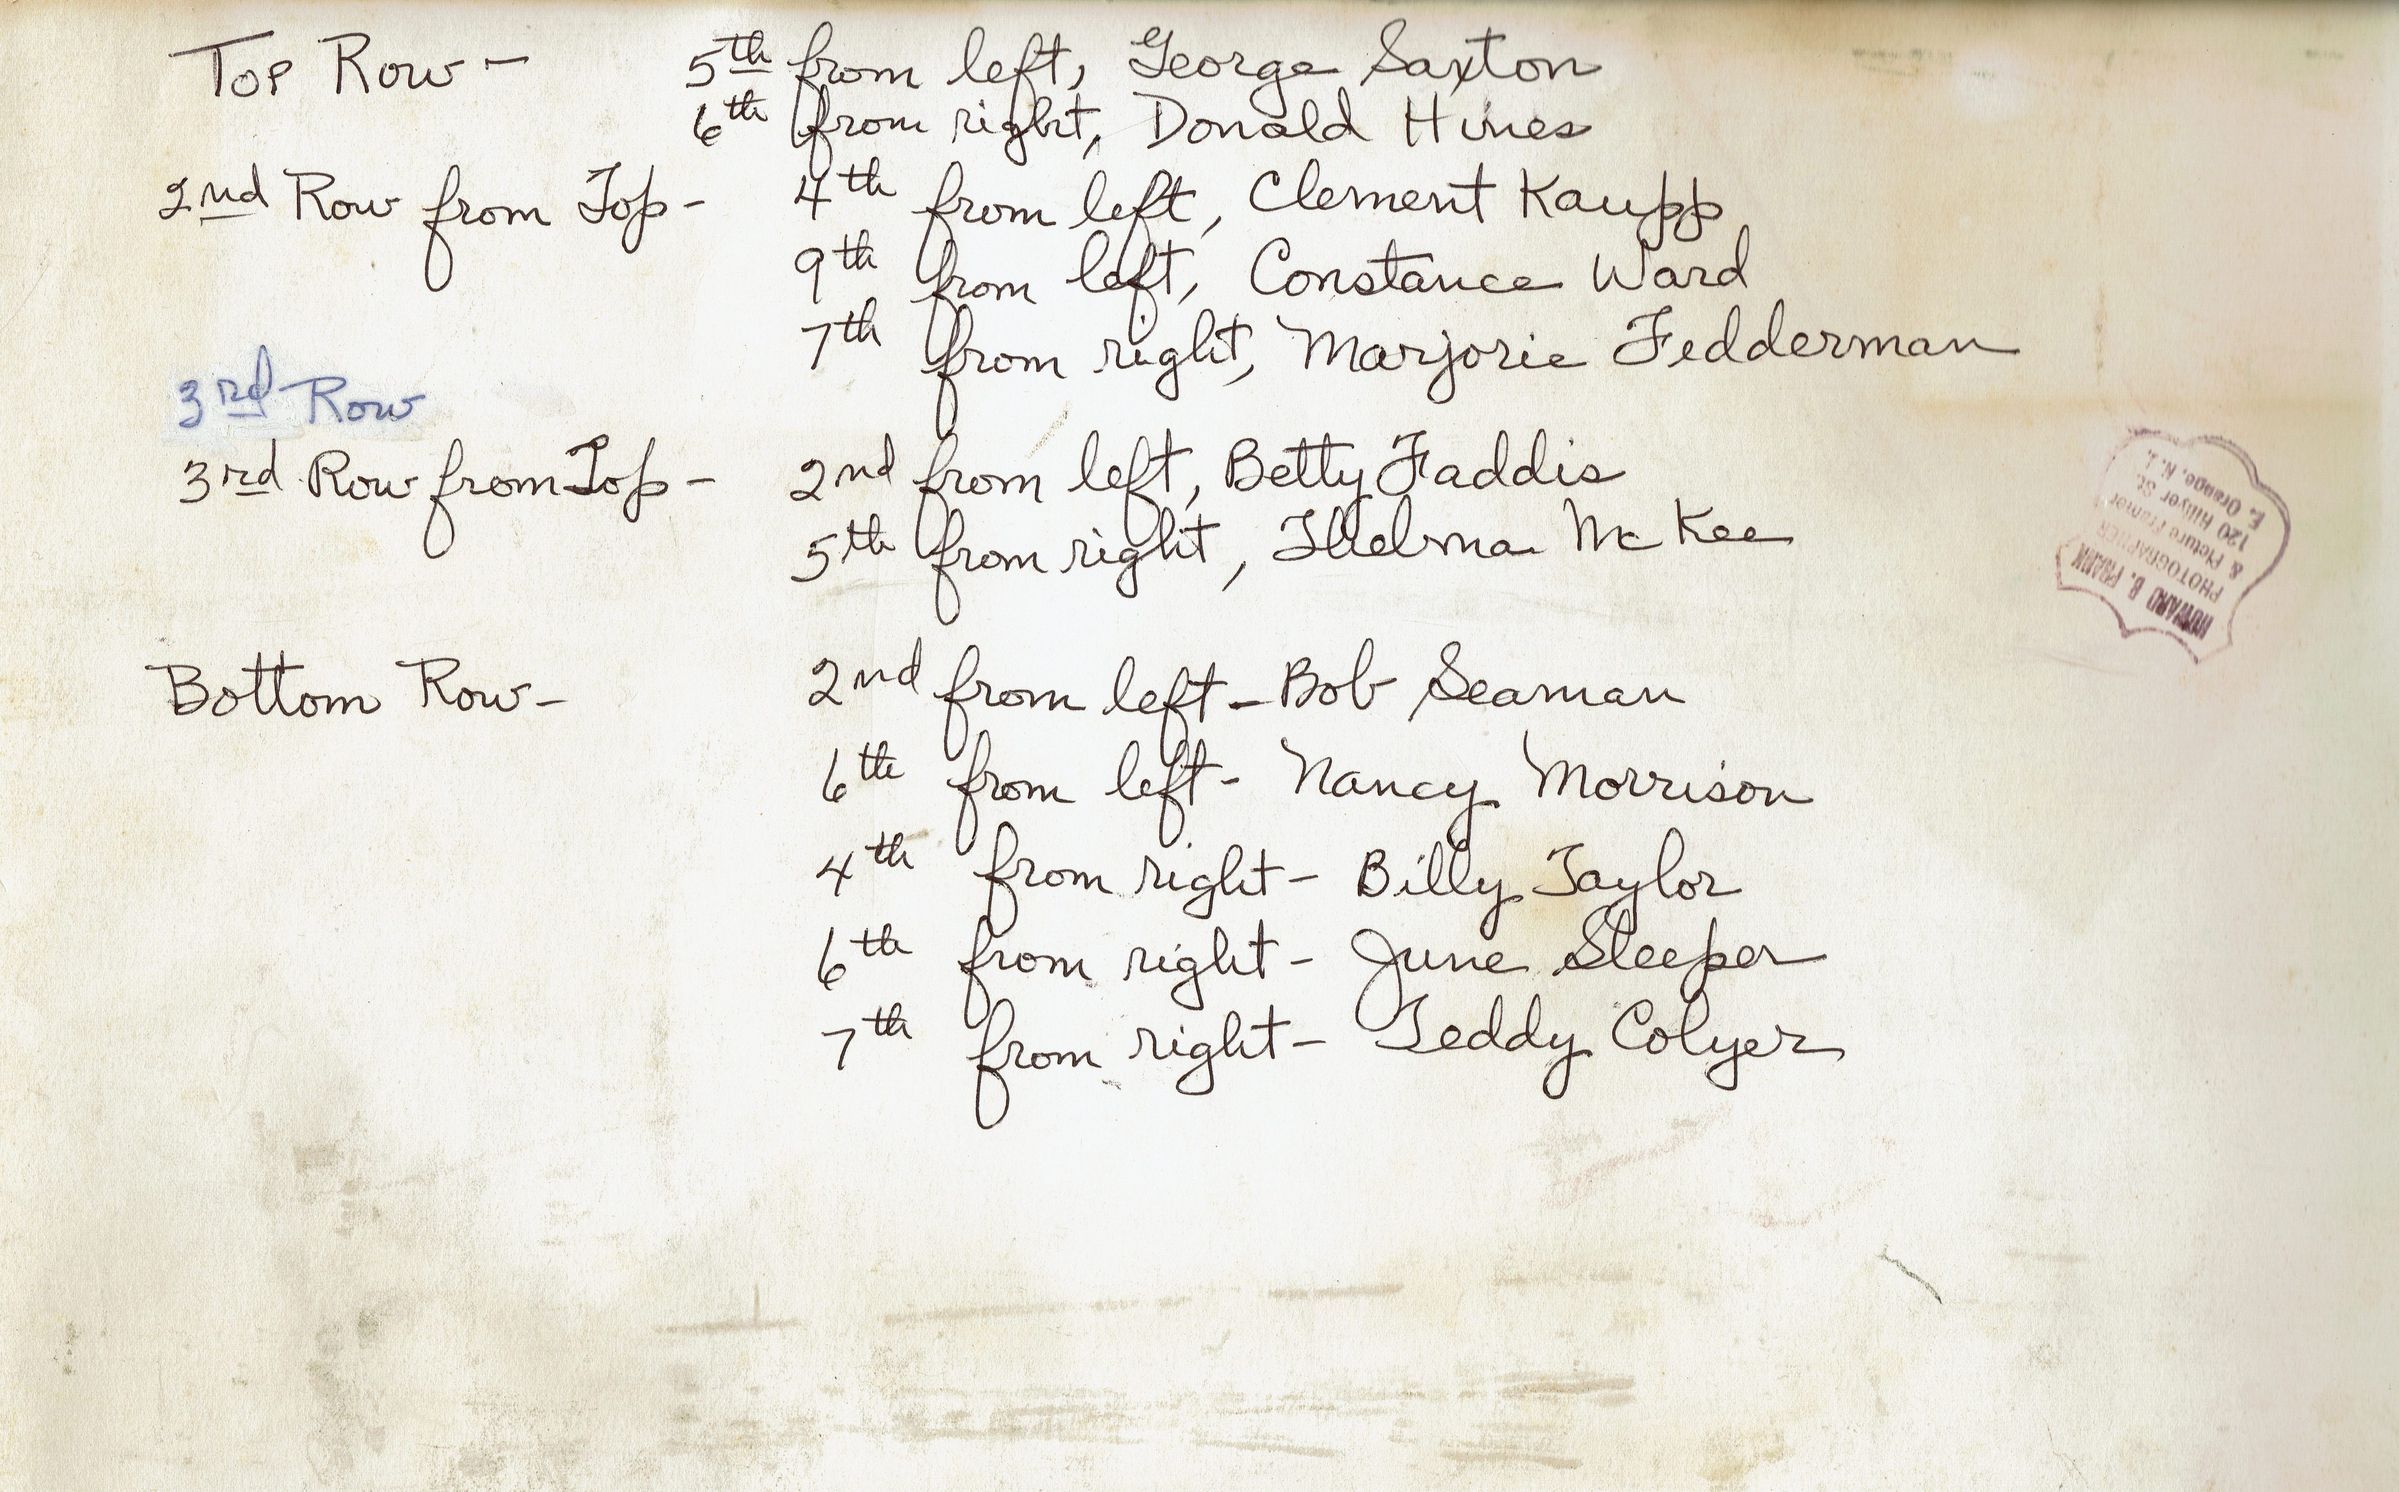 Top Row - 5th from left, George Saxton
6th from right, Donald Hines
2nd Row from Top - 4th from left, Clement Kaupp
9th from left, Constance Ward
7th from right, Marjorie Fedderman
3rd Row
3rd Row from Top - 2nd from left, Betty Faddis
5th from right, Thelma McKee
Bottom Row - 2nd from left - Bob Seaman
6th from left - Nancy Morrison
4th from right - Billy Taylor
6th from right - June Sleeper
7th from right - Teddy Colyer
HOWARD B. FRANK
PHOTOGRAPHER
& Picture Framer
120 Hillyer St.
E. Orange, N.J.